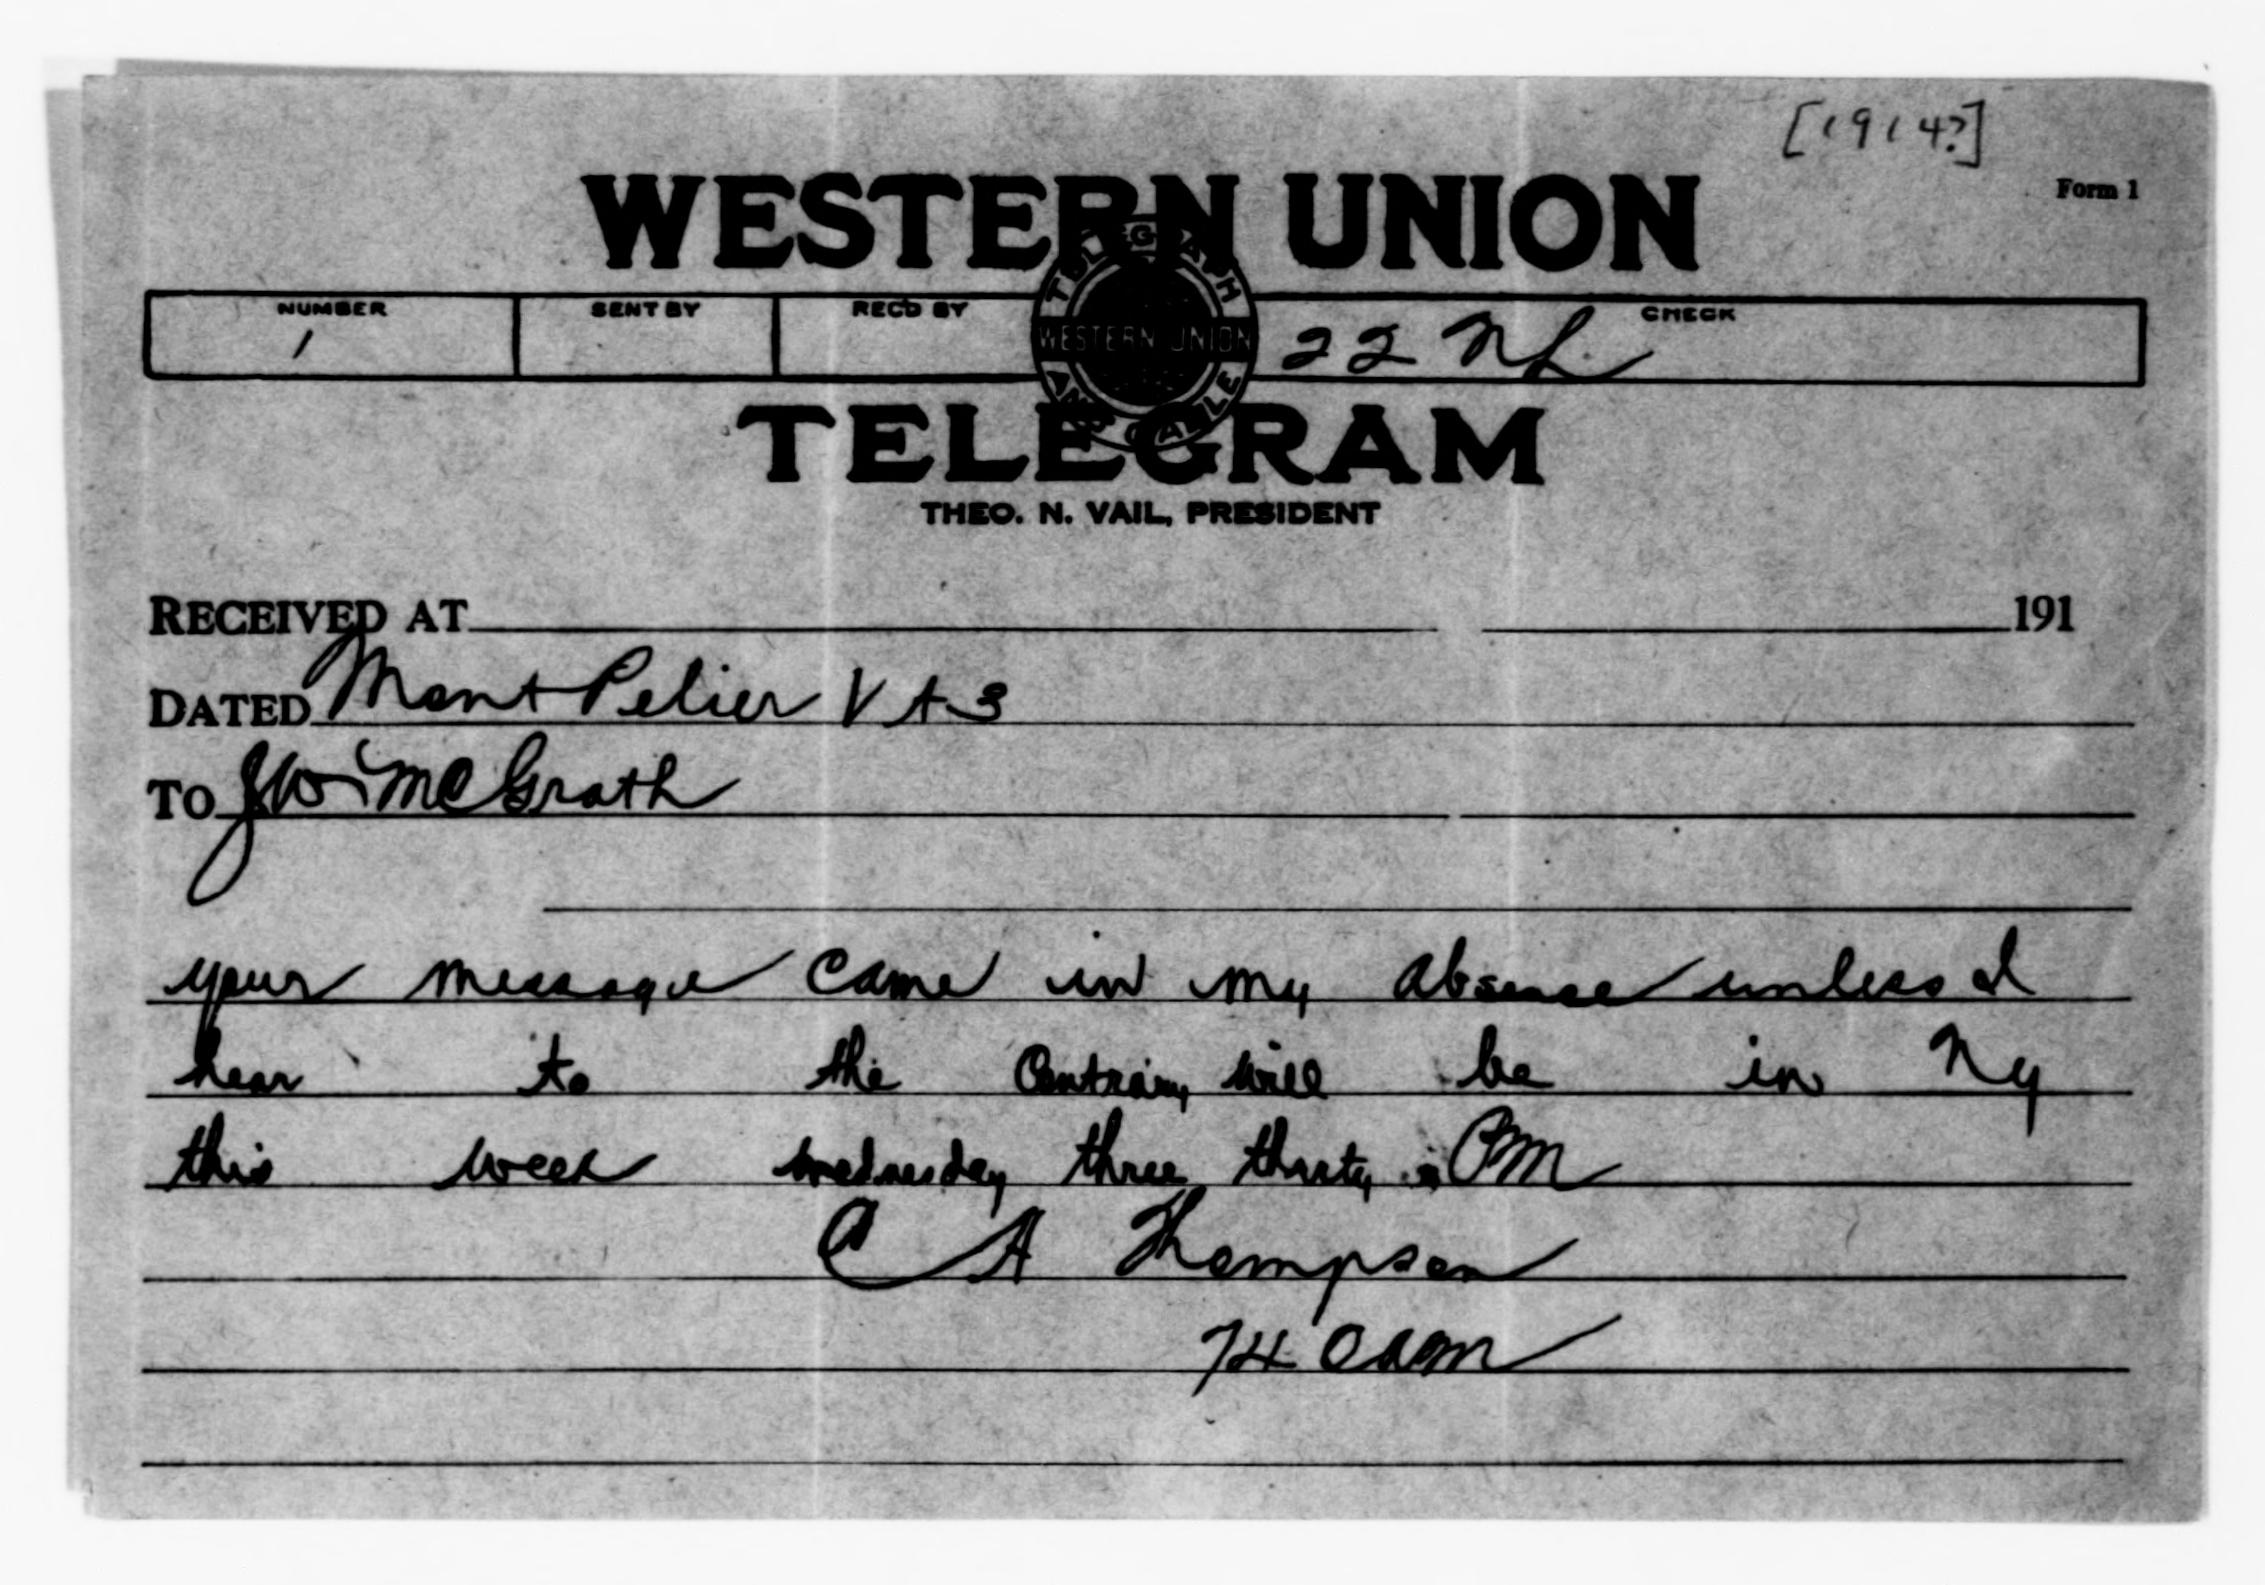 [1914?]
Form 1
WESTERN UNION
TELEGRAPH AND CABLE
WESTERN UNION
NUMBER SENT BY REC'D BY CHECK
1 22 NL
TELEGRAM
THEO. N. VAIL, PRESIDENT
RECEIVED AT 191
DATED Mont Pelier VA 3
TO J W McGrath
your message came in my absence unless I
hear to the Contrary will be in Ny
this week wednesday three thirty PM
C A Thompson
740am